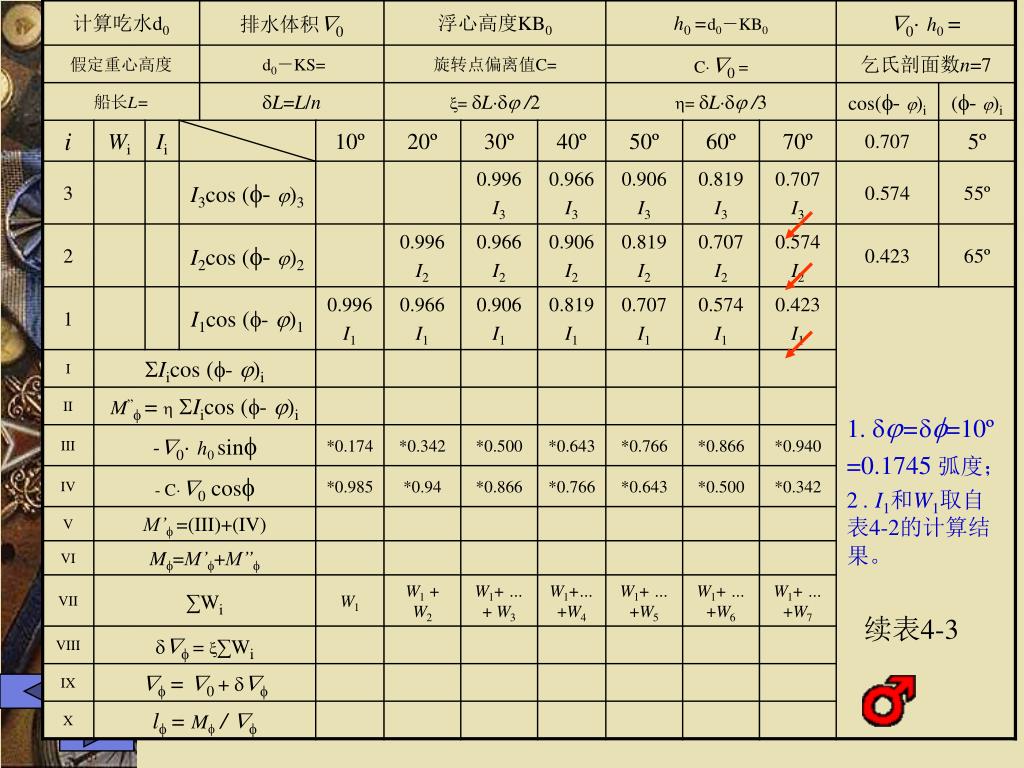 计算吃水d₀ 排水体积∇₀ 浮心高度KB₀ h₀ =d₀－KB₀ ∇₀· h₀ =
假定重心高度 d₀－KS= 旋转点偏离值C= C· ∇₀ = 乞氏剖面数n=7
船长L= δL=L/n ξ= δL·δφ /2 η= δL·δφ /3 cos(ϕ- φ)ᵢ (ϕ- φ)ᵢ
i Wᵢ Iᵢ 10º 20º 30º 40º 50º 60º 70º 0.707 5º
3 I₃cos (ϕ- φ)₃ 0.996 I₃ 0.966 I₃ 0.906 I₃ 0.819 I₃ 0.707 I₃ 0.574 55º
2 I₂cos (ϕ- φ)₂ 0.996 I₂ 0.966 I₂ 0.906 I₂ 0.819 I₂ 0.707 I₂ 0.574 I₂ 0.423 65º
1 I₁cos (ϕ- φ)₁ 0.996 I₁ 0.966 I₁ 0.906 I₁ 0.819 I₁ 0.707 I₁ 0.574 I₁ 0.423 I₁
I ΣIᵢcos (ϕ- φ)ᵢ
II M’’ϕ = η ΣIᵢcos (ϕ- φ)ᵢ
III - ∇₀· h₀ sinϕ *0.174 *0.342 *0.500 *0.643 *0.766 *0.866 *0.940
IV - C· ∇₀ cosϕ *0.985 *0.94 *0.866 *0.766 *0.643 *0.500 *0.342
V M’ϕ =(III)+(IV)
VI Mϕ=M’ϕ+M’’ϕ
VII ∑Wᵢ W₁ W₁ + W₂ W₁+ … + W₃ W₁+… +W₄ W₁+ … +W₅ W₁+ … +W₆ W₁+ … +W₇
VIII δ∇ϕ = ξ∑Wᵢ
IX ∇ϕ = ∇₀ + δ∇ϕ
X lϕ = Mϕ / ∇ϕ
1. δφ=δϕ=10º
=0.1745 弧度；
2 . I₁和W₁取自
表4-2的计算结
果。
续表4-3